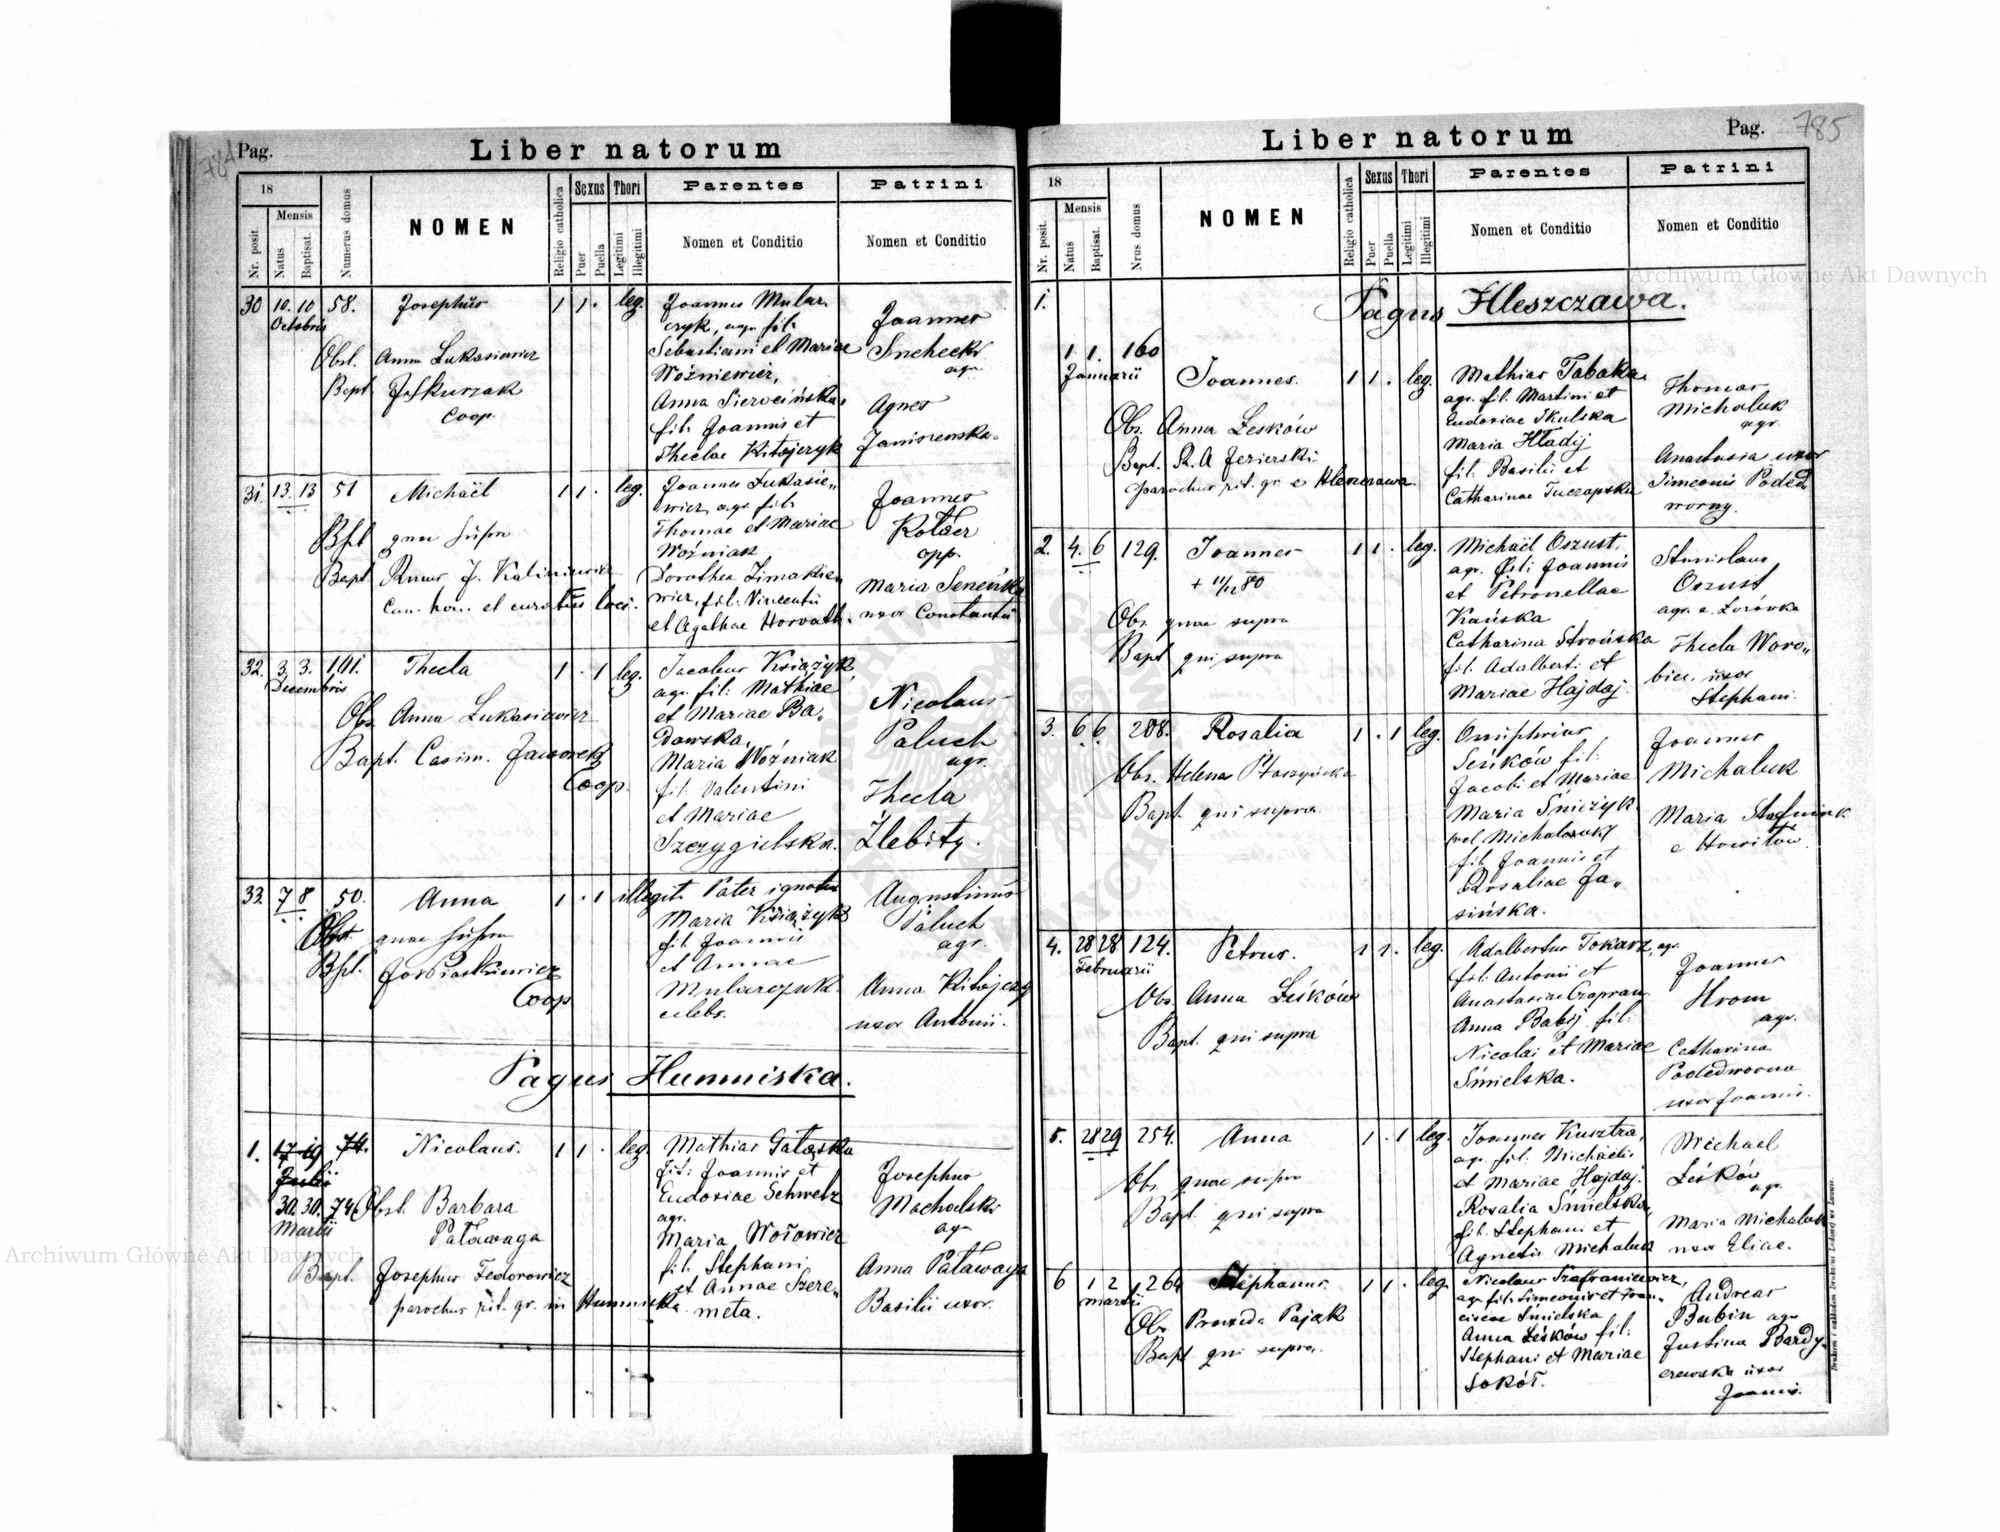 784 Pag.
Liber natorum
18
Mensis
Nr. posit.
Natus
Baptisat.
Numerus domus
NOMEN
Religio catholica
Sexus
Puer
Puella
Thori
Legitimi
Illegitimi
Parentes
Nomen et Conditio
Patrini
Nomen et Conditio
30 10. 10 58. Josephus 1 1 . leg.
Octobris
Obst. Anna Lukasiewicz
Bapt. J. Skurzak
Coop.
Joannes Mular
czyk, agr. fil.
Sebastiani et Mariae
Woźniewicz,
Anna Sierocińska
fil. Joannis et
Theclae Kitajczyk
Joannes
Snehecki
agr.
Agnes
Janiszewska.
31. 13. 13 51 Michaël 1 1 . leg.
Obst quae supra
Bapt. J. Kaliniewicz
Can. hon. et curatus loci.
Joannes Lukasie
wicz, agr. fil.
Thomae et Mariae
Woźniak
Dorothea Zimakie
wicz, fil. Vincentii
et Agathae Horvath.
Joannes
Kołacz
opp.
Maria Seneńka
uxor Constantii
32. 3. 3. 101. Thecla 1 . 1 leg.
Decembris
Obs. Anna Lukasiewicz
Bapt. Casim. Jaworek
Coop.
Jacobus Książyk,
agr. fil. Mathiae
et Mariae Ba
dowska,
Maria Woźniak
fil. Valentini
et Mariae
Szczygielska.
Nicolaus
Paluch
agr.
Thecla
Zlebity.
33. 7 8 50. Anna 1 . 1 illegit.
Obst. quae supra
Bpt. Jos Piaskiewicz
Coop
Pater ignotus
Maria Książyk
fil. Joannis
et Annae
Mularczuk
celebs.
Augustinus
Paluch
agr.
Anna Kitajczy
uxor Antonii.
Pagus Humniska.
1. 17 19 74. Nicolaus. 1 1 . leg.
Julii
30. 30. 74 Obst. Barbara
Martii
Patawaga
Bapt. Josephus Fedorowicz
parochus rit. gr. in Humniska
Mathias Gałaska
fil. Joannis et
Eudoxiae Schwetz
agr.
Maria Wołowicz
fil. Stephani
et Annae Szere
meta.
Josephus
Machalski
agr
Anna Patawaga
Basilii uxor.
Liber natorum
Pag. 785
18
Mensis
Nr. posit.
Natus
Baptisat.
Nrus domus
NOMEN
Religio catholica
Sexus
Puer
Puella
Thori
Legitimi
Illegitimi
Parentes
Nomen et Conditio
Patrini
Nomen et Conditio
Pagus Hleszczawa.
1.
1 1. 160
Januarii
Joannes. 1 1 . leg.
Obs. Anna Lesków
Bapt. R. A Jezierski
parochus rit. gr. e Hleszczawa
Mathias Tabaka
agr. fil. Martini et
Eudoxiae Skulska
Maria Hładij
fil. Basilii et
Catharinae Tuczapska
Thomas
Michaluk
agr.
Anastasia uxor
Simeonis Poded
worny.
2. 4. 6 129. Joannes 1 1 . leg.
+ 11/12 80
Obs. quae supra
Bapt qui supra
Michaël Oszust,
agr. fil. Joannis
et Petronellae
Kańska
Catharina Strońska
fil. Adalberti et
Mariae Hajdaj.
Stanislaus
Oszust
agr. e. Lozówka
Thecla Woro
biec. uxor
Stephani.
3. 6 6 208. Rosalia 1 . 1 leg.
Obs. Helena Ptaszyńska
Bapt. qui supra
Onuphrius
Leśków fil.
Jacobi et Mariae
Maria Śnieżyk
vel Michalczuk
fil. Joannis et
Rosaliae Ja
sińska.
Joannes
Michaluk
Maria
e Howiłów.
4. 28 28 124. Petrus. 1 1 . leg.
Februarii
Obs. Anna Leśków
Bapt. qui supra
Adalbertus Tokarz, agr.
fil. Antonii et
Anastasiae Czapran
Anna Babij fil.
Nicolai et Mariae
Śmielska.
Joannes
Hrom
agr.
Catharina
Podedworna
uxor Joannis.
5. 28 29 254. Anna 1 . 1 leg.
Obs. quae supra
Bapt qui supra
Joannes Kusztra,
agr. fil. Michaelis
et Mariae Hajdaj.
Rosalia Śmielska,
fil. Stephani et
Agnetis Michaluk
Michael
Leśków
agr.
Maria Michaluk
uxor Eliae.
6 1 2 264 Stephanus. 1 1 . leg.
Martii
Obs. Praxeda Pająk
Bapt qui supra.
Nicolaus Szafraniewicz,
agr. fil. Simeonis et Fran
ciscae Śmielska
Anna Leśków fil.
Stephani et Mariae
Sokół.
Andreas
Bubin agr
Justina Bardy
czewska uxor
Joannis.
Drukiem i nakładem Drukarni Ludowej we Lwowie.
Archiwum Główne Akt Dawnych
Archiwum Główne Akt Dawnych